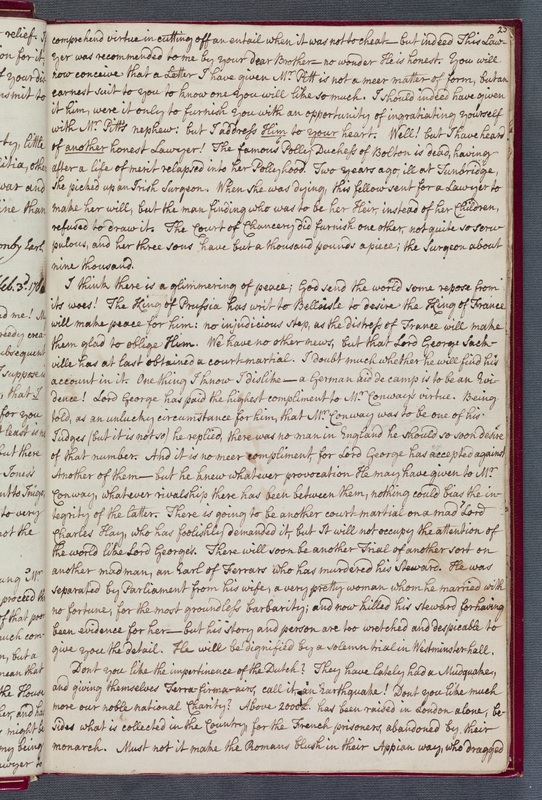 23
comprehend virtue in cutting off an entail when it was not to cheat — but indeed This Law-
yer was recommended to me by your dear Brother — no wonder He is honest. You will
now conceive that a Letter I have given Mr Pitt is not a meer matter of form, but an
earnest suit to you to know one you will like so much. I should indeed have given
it him, were it only to furnish you with an opportunity of ingratiating yourself
with Mr Pitt's nephew: but I address Him to your heart. Well! but I have heard
of another honest Lawyer! The famous Polly Duchess of Bolton is dead, having
after a life of merit relapsed into her Pollyhood. Two years ago, ill at Tunbridge,
she picked up an Irish Surgeon. When she was dying, this fellow sent for a Lawyer to
make her will, but the man finding who was to be her Heir, instead of her Children,
refused to draw it. The Court of Chancery did furnish one other, not quite so scru-
pulous, and her three sons have but a thousand pounds a piece; the Surgeon about
nine thousand.
I think there is a glimmering of peace; God send the world some repose from
its woes! The King of Prussia has writ to Belleisle to desire the King of France
will make peace for him: no injudicious step, as the distress of France will make
them glad to oblige Him. We have no other news, but that Lord George Sack-
ville has at last obtained a court-martial. I doubt much whether he will find his
account in it. One thing I know I dislike — a German aid de camp is to be an Evi-
dence! Lord George has paid the highest compliment to Mr Conway's virtue. Being
told, as an unlucky circumstance for him, that Mr Conway was to be one of his
Judges (but it is not so) he replied, there was no man in England he should so soon desire
of that number. And it is no meer compliment, for Lord George has accepted against
Another of them — but he knew whatever provocation He may have given to Mr
Conway, whatever rivalship there has been between them, nothing could bias the in-
tegrity of the latter. There is going to be another court martial on a mad Lord
Charles Hay, who has foolishly demanded it, but It will not occupy the attention of
the world like Lord George's. There will soon be another Trial of another sort on
another madman, an Earl of Ferrars who has murdered his Steward. He was
separated by Parliament from his wife, a very pretty woman whom he married with
no fortune, for the most groundless barbarity; and now killed his steward for having
been evidence for her — but his Story and person are too wretched and despicable to
give you the detail. He will be dignified by a solemn trial in Westminster hall.
Don't you like the impertinence of the Dutch? They have lately had a Mudquake,
and giving themselves Terra-firma-airs, call it an Earthquake! Dont you like much
more our noble national Charity? Above 2000£. has been raised in London alone, be-
sides what is collected in the Country, for the French prisoners, abandoned by their
monarch. Must not it make the Romans blush in their Appian way, who dragged